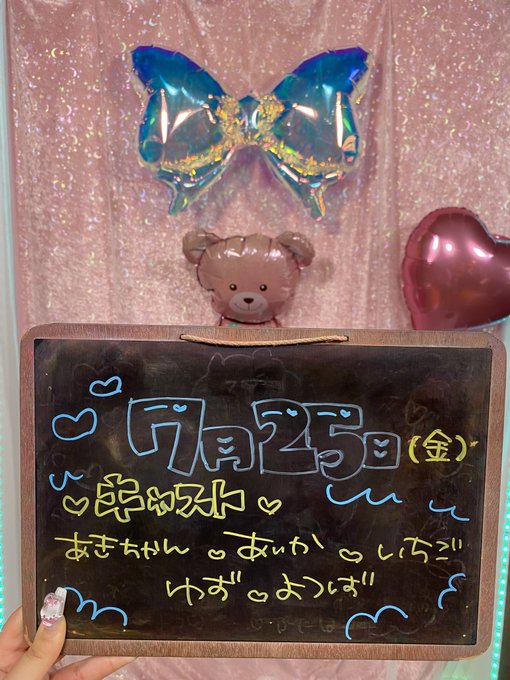 7月25日(金)
♡キャスト♡
あきちゃん♡あいか♡いちご
ゆず♡よつば